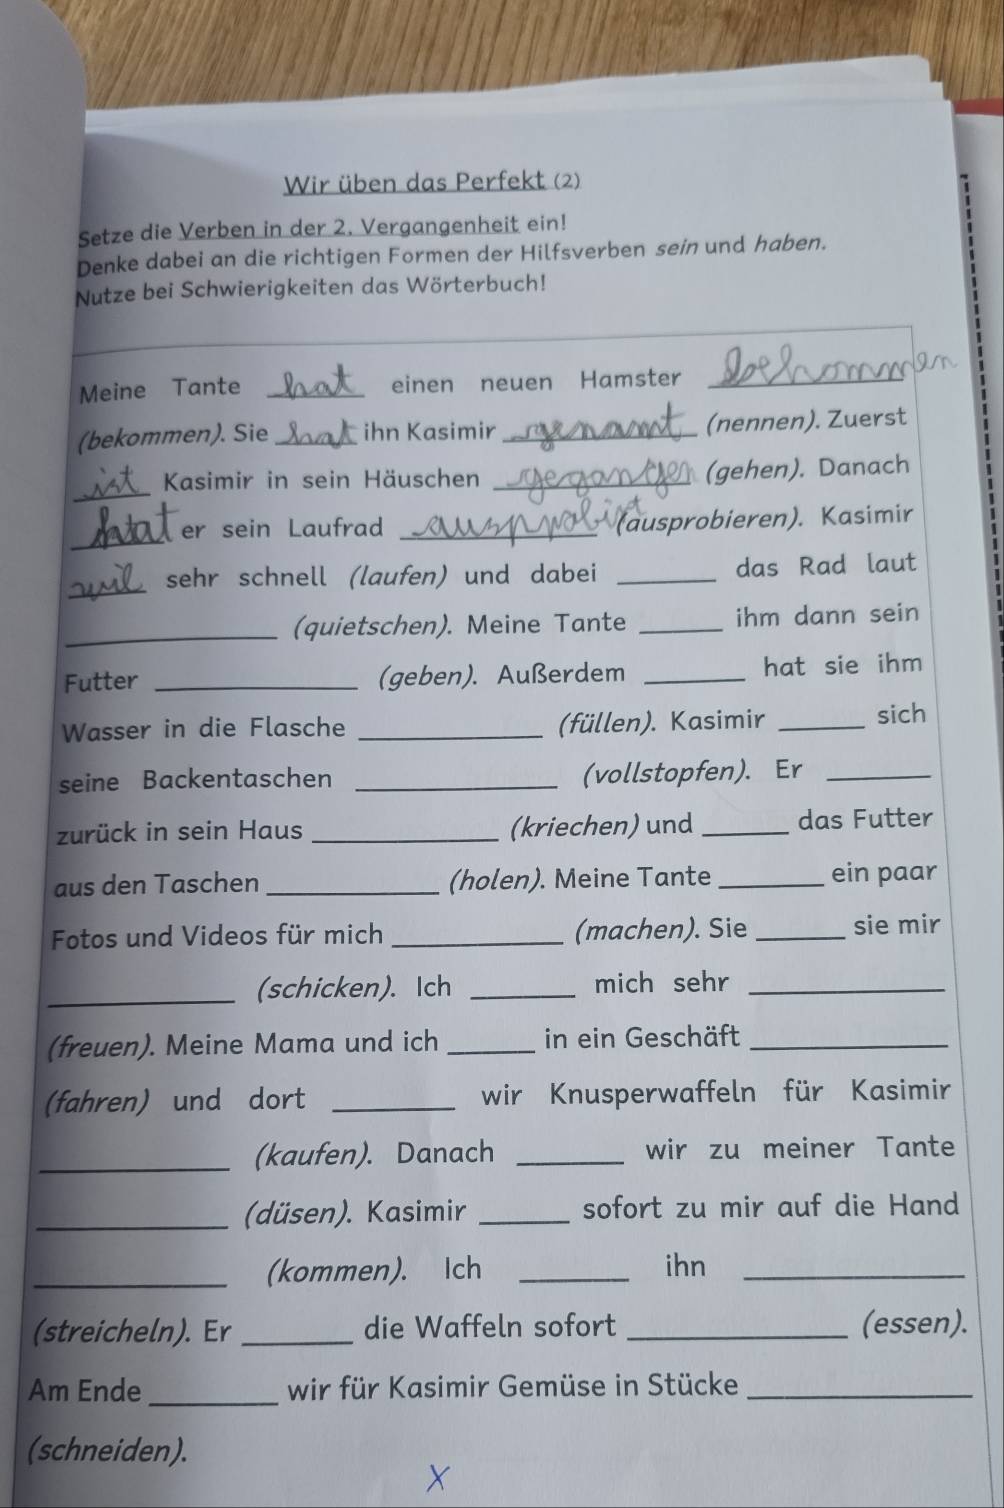 Wir üben das Perfekt (2)
Setze die Verben in der 2. Vergangenheit ein!
Denke dabei an die richtigen Formen der Hilfsverben sein und haben.
Nutze bei Schwierigkeiten das Wörterbuch!
Meine Tante hat einen neuen Hamster bekommen
(bekommen). Sie hat ihn Kasimir genannt (nennen). Zuerst
ist Kasimir in sein Häuschen gegangen (gehen). Danach
hat er sein Laufrad (ausprobieren). Kasimir
sehr schnell (laufen) und dabei ______ das Rad laut
______ (quietschen). Meine Tante ______ ihm dann sein
Futter ______ (geben). Außerdem ______ hat sie ihm
Wasser in die Flasche ______ (füllen). Kasimir ______ sich
seine Backentaschen ______ (vollstopfen). Er ______
zurück in sein Haus ______ (kriechen) und ______ das Futter
aus den Taschen ______ (holen). Meine Tante ______ ein paar
Fotos und Videos für mich ______ (machen). Sie ______ sie mir
______ (schicken). Ich ______ mich sehr ______
(freuen). Meine Mama und ich ______ in ein Geschäft ______
(fahren) und dort ______ wir Knusperwaffeln für Kasimir
______ (kaufen). Danach ______ wir zu meiner Tante
______ (düsen). Kasimir ______ sofort zu mir auf die Hand
______ (kommen). Ich ______ ihn ______
(streicheln). Er ______ die Waffeln sofort ______ (essen).
Am Ende ______ wir für Kasimir Gemüse in Stücke ______
(schneiden).
X